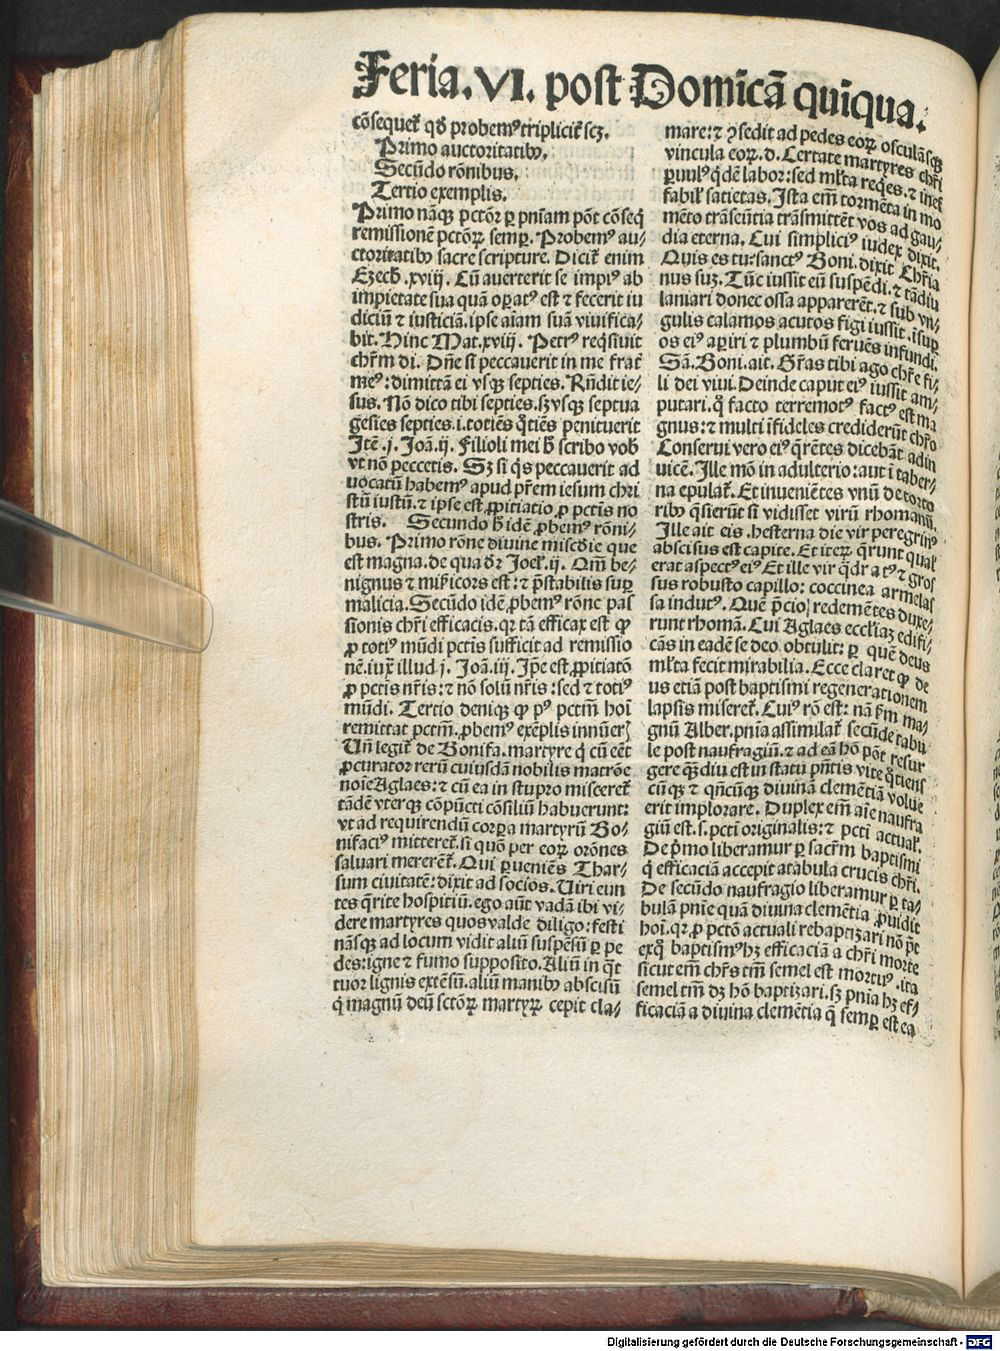 Feria.VI. post Domicā quīqua.
cōsequet᷑ qđ probemꝰ triplicit᷑ scꝫ.
Primo auctoritatibꝰ.
Secūdo rōnibus.
Tertio exemplis.
Primo nāqꝫ pctōr ꝑ pn̄iam pōt cōseq̄
remissionē pctōꝝ semꝑ. Probemꝰ au⸗
ctoritatibꝰ sacre scripture. Dicit᷑ enim
Ezech̄.xviij. Cū auerterit se impiꝰ ab
impietate sua quā oꝑatꝰ est ⁊ fecerit iu
diciū ⁊ iusticiā.ipse aīam suā viuifica⸗
bit. Hinc Mat.xviij. Petrꝰ reqͥsiuit
chr̄m di. Dn̄e si peccauerit in me frat᷑
meꝰ:dimittā ei vsqꝫ septies. Rn̄dit ie⸗
sus. Nō dico tibi septies.sꝫ vsqꝫ septua
gesies septies.i.totiēs qͦtiēs penituerit
Itē.j. Joā.ij. Filioli mei h̄ scribo vob̄
vt nō peccetis. Sꝫ si qͥs peccauerit ad
uocatū habemꝰ apud pr̄em iesum chri
stū iustū.⁊ ipse est ꝓpitiatio ꝓ pctis no
stris. Secundo h̄ idē ꝓbemꝰ rōni⸗
bus. Primo rōne diuine miscd̄ie que
est magna.de qua dr̄ Joel᷑.ij. Qm̄ be⸗
nignus ⁊ mis̄icors est:⁊ p̄stabilis suꝑ
malicia.Secūdo idē ꝓbemꝰ rōne pas
sionis chr̄i efficacis.qꝛ tā efficax est ꝙ
ꝓ totiꝰ mūdi pctis sufficit ad remissio
nē.iux̄ illud j. Joā.iij. Ip̄e est ꝓpitiatō
ꝓ pctis nr̄is:⁊ nō solū nr̄is:sed ⁊ totiꝰ
mūdi. Tertio deniqꝫ ꝙ pꝰ pctm̄ hoī
remittat pctm̄.ꝓbemꝰ exēplis innūer
Un̄ legit᷑ de Bonifa.martyre qͥ cū eēt
ꝓcurator rerū cuiusdā nobilis matrōe
noīe Aglaes:⁊ cū ea in stupro misceret᷑
tādē vterqꝫ cōpūcti cōsiliū habuerunt:
vt ad requirendū corꝑa martyrū Bo⸗
nifaciꝰ mitteret᷑.si quō per eoꝝ orōnes
saluari mererēt᷑. Qui ꝑueniēs Thar⸗
sum ciuitatē:dixit ad socios. Uiri eun
tes q̄rite hospitiū.ego aūt vadā ibi vi⸗
dere martyres quos valde diligo:festi
nāsqꝫ ad locum vidit aliū suspēsū ꝑ pe
des:igne ⁊ fumo supposito. Aliū in qͣt
tuor lignis extēsū.aliū manibꝰ abscisū
qͥ magnū deū sctōꝝ martyꝝ cepit cla⸗
mare:⁊ ꝯsedit ad pedes eoꝝ osculāsqꝫ
vincula eoꝝ.d. Certate martyres chr̄i
ꝑuulꝰ qͥdē labor:sed ml̄ta req̄es.⁊ inef
fabil᷑ satietas. Ista em̄ tormēta in mo
mēto trāseūtia trāsmittēt vos ad gau⸗
dia eterna. Cui simpliciꝰ iudex dixit.
Quis es tu:sanctꝰ Boni.dixit Chr̄ia
nus suꝫ. Tūc iussit eū suspēdi.⁊ tādiu
laniari donec ossa apparerēt.⁊ sub vn⸗
gulis calamos acutos figi iussit.īsuꝑ
os eiꝰ aꝑiri ⁊ plumbū feruēs infundi.
Sā. Boni.ait. Gr̄as tibi ago chr̄e fi⸗
li dei viui. Deinde caput eiꝰ iussit am⸗
putari.qͦ facto terremotꝰ factꝰ est ma
gnus:⁊ multi īfideles crediderūt chr̄o
Conserui vero eiꝰ q̄rētes dicebāt adin
uicē. Ille mō in adulterio:aut ī taber⸗
na epulat᷑. Et inueniētes vnū de torto
ribꝰ q̄sierūt si vidisset virū rhomanū.
Ille ait eis. hesterna die vir peregrinꝰ
abscisus est capite. Et iteꝝ q̄runt qual᷑
erat aspectꝰ eiꝰ Et ille vir qͣdratꝰ ⁊ gros
sus robusto capillo: coccinea armelas
sa indutꝰ. Quē p̄cio redemētes duxe⸗
runt rhomā. Cui Aglaes eccl̄iaꝫ edifi⸗
cās in eadē se deo obtulit: ꝑ quē deus
ml̄ta fecit mirabilia. Ecce claret ꝙ de
us etiā post baptismi regenerationem
lapsis miseret᷑. Cuiꝰ rō est: nā ẜm ma⸗
gnū Alber.pn̄ia assimilat᷑ secūde tabu
le post naufragiū.⁊ ad eā hō pōt resur
gere qͣꝫdiu est in statu pn̄tis vite qͦtiens
cūqꝫ ⁊ qn̄cūqꝫ diuinā clemētiā volue
erit implorare. Duplex em̄ aīe naufra
giū est.s.pctī originalis:⁊ pctī actual᷑.
De pͥmo liberamur ꝑ sacr̄m baptismi
qͥ efficaciā accepit a tabula crucis chr̄i.
De secūdo naufragio liberamur ꝑ ta⸗
bulā pn̄ie quā diuina clemētia ꝓuidit
hoī.qꝛ ꝓ pctō actuali rebaptizari nō pōt
exqͦ baptismꝰ hꝫ efficaciā a chr̄i morte
sicut em̄ chr̄s tm̄ semel est mortuꝰ.ita
semel tm̄ dꝫ hō baptizari.sꝫ pn̄ia hꝫ ef⸗
ficaciā a diuina clemētia q̄ semꝑ est ea
Digitalisierung gefördert durch die Deutsche Forschungsgemeinschaft - DFG